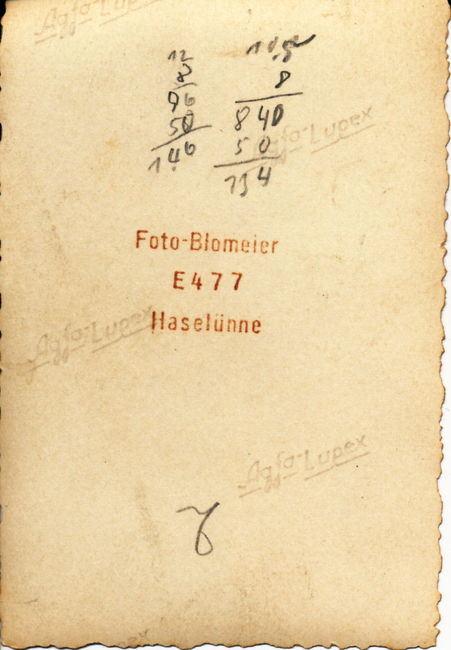 Agfa-Lupex
12
8
96
50
146
8
840
50
134
Agfa-Lupex
Foto-Blomeier
E477
Haselünne
Agfa-Lupex
Agfa-Lupex